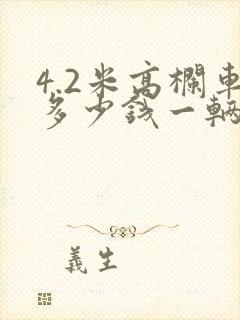 4.2米高欄車
多少钱一辆
義生